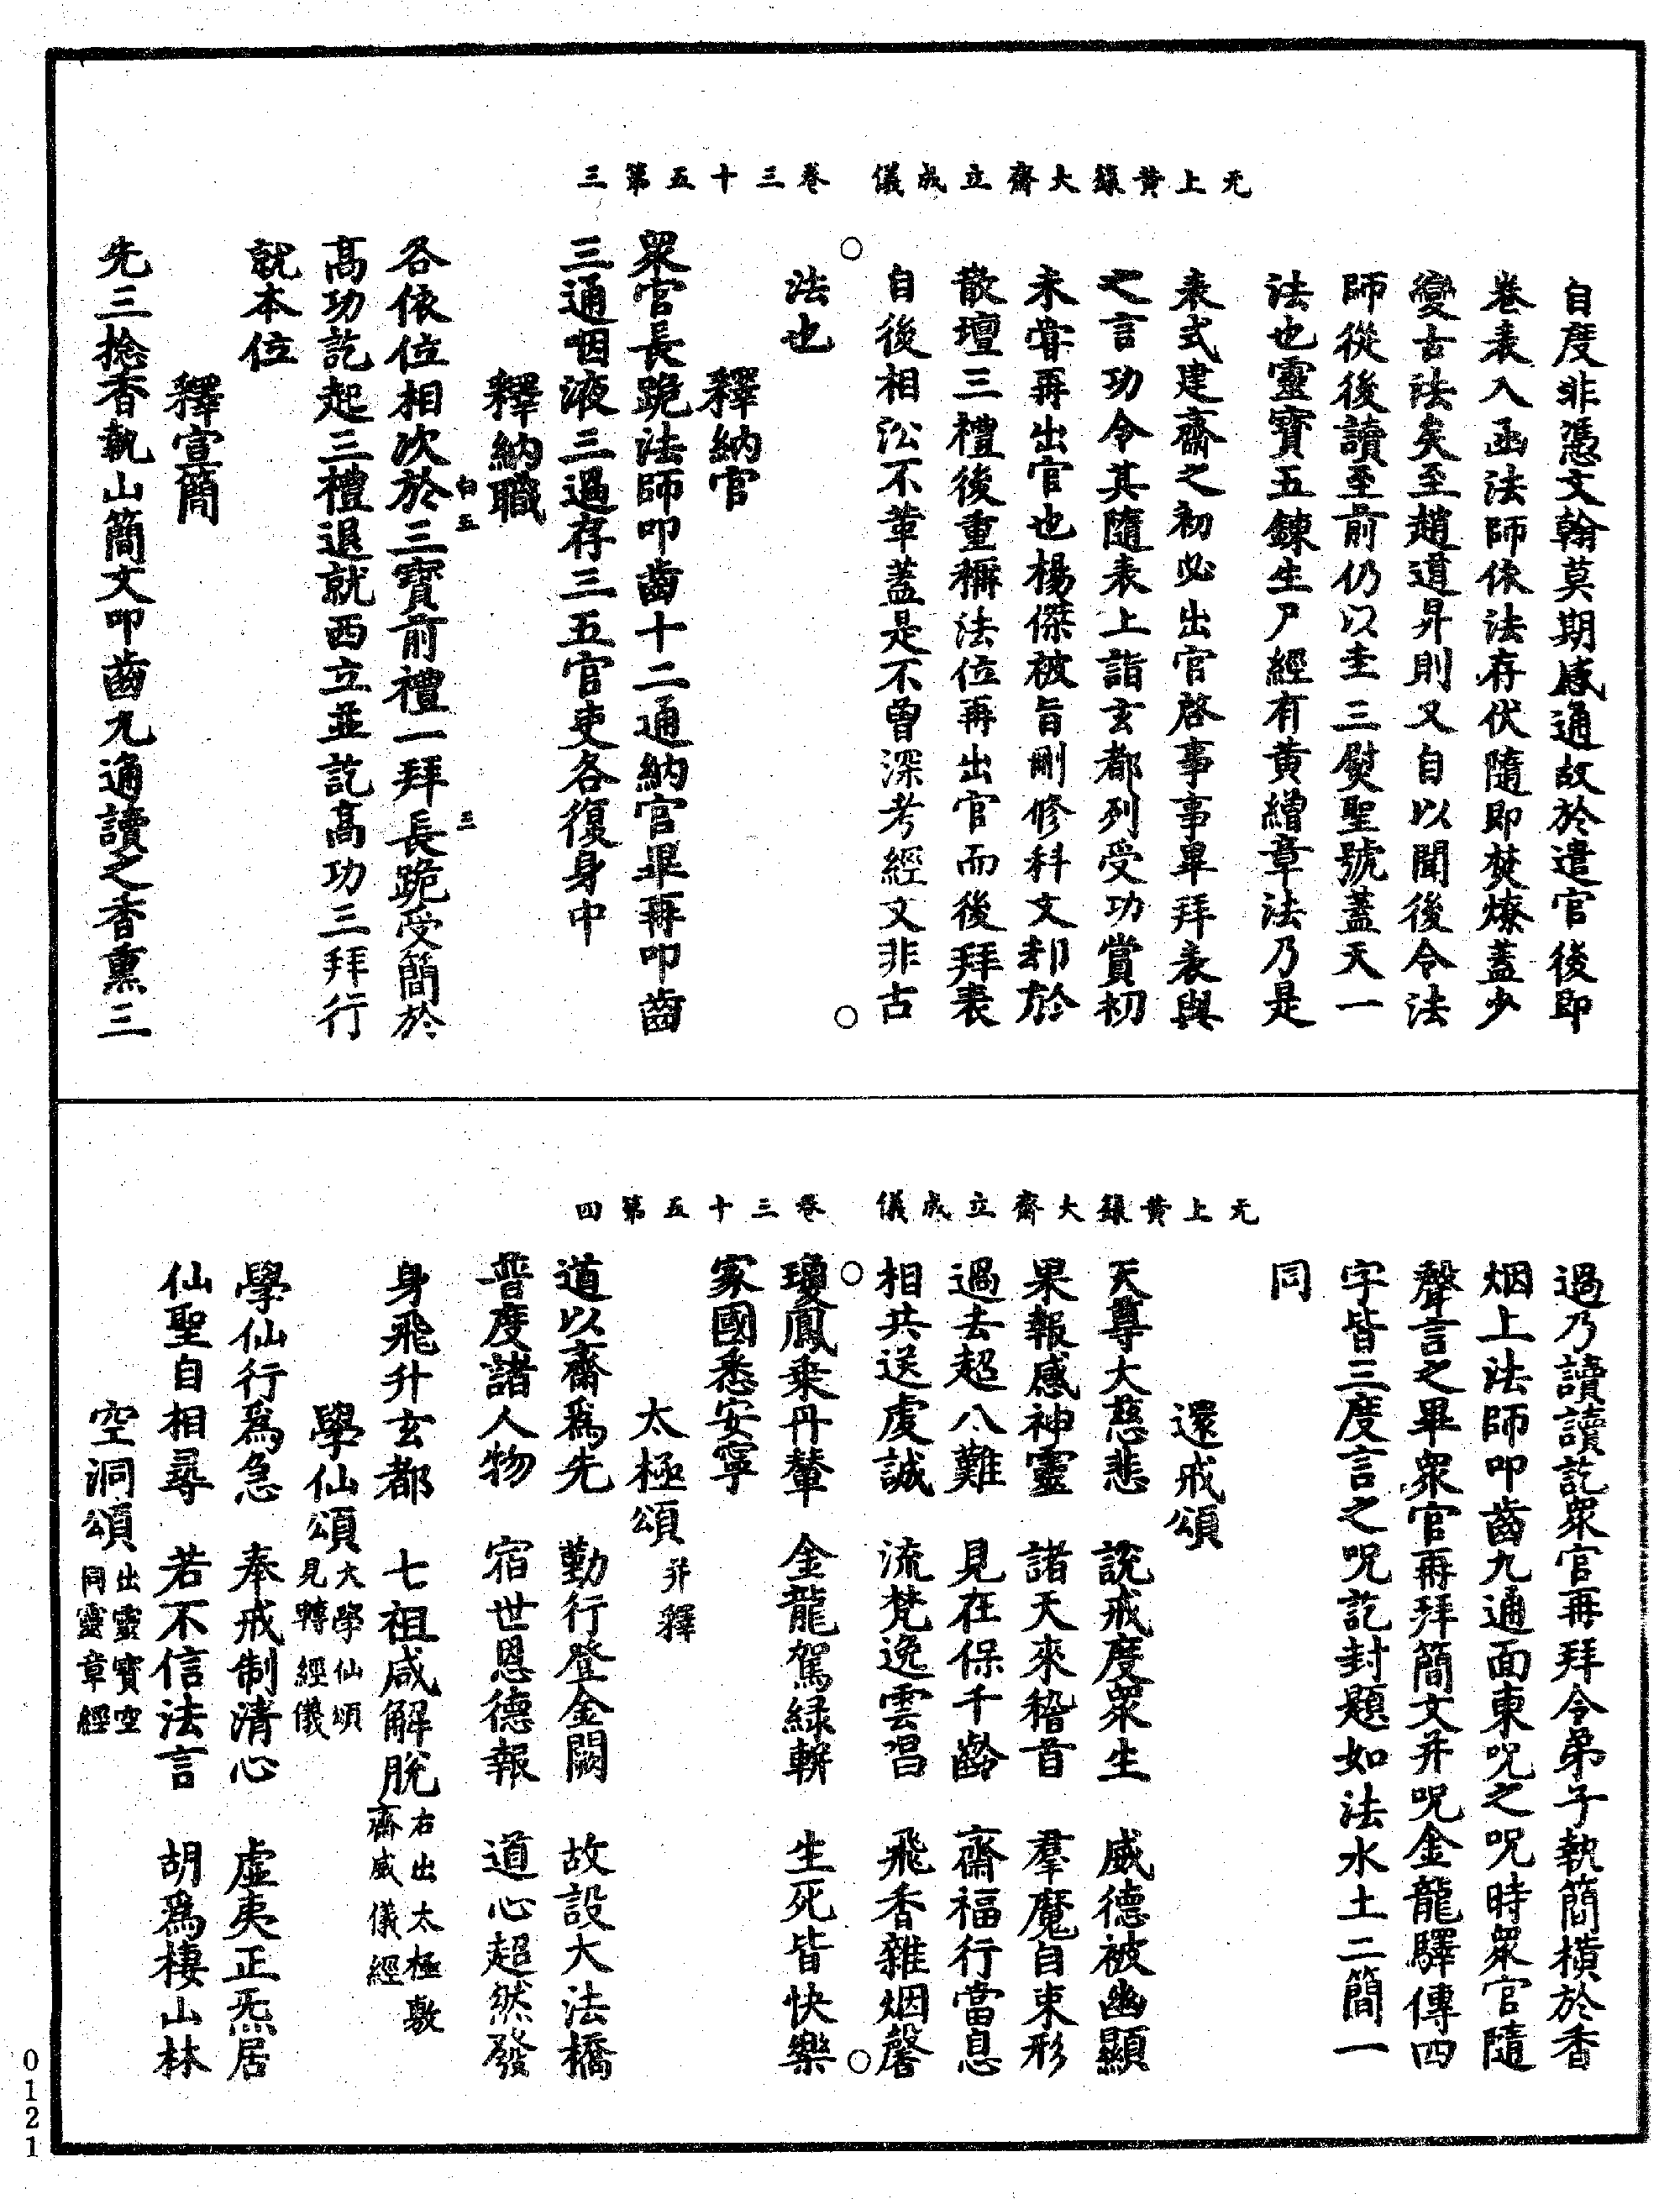 无上黃籙大齋立成儀 卷三十五第三
自度非憑文翰莫期感通故於遣官後即
卷表入函法師依法存伏隨即焚燎蓋少
變古法矣至趙道昇則又自以聞後令法
師從後讀至前仍以圭三熨聖號蓋天一
法也靈寶五鍊生尸經有黃繒章法乃是
表式建齋之初必出官啓事事畢拜表與
之言功令其隨表上詣玄都列受功賞初
未嘗再出官也楊傑被旨刪修科文却於
散壇三禮後重稱法位再出官而後拜表
自後相沿不革蓋是不曾深考經文非古
法也
釋納官
眾官長跪法師叩齒十二通納官畢再叩齒
三通咽液三過存三五官吏各復身中
釋納職
各依位相次於三寶前禮一拜長跪受簡於
高功訖起三禮退就西立並訖高功三拜行
就本位
釋宣簡
先三捻香執山簡文叩齒九通讀之香熏三
无上黃籙大齋立成儀 卷三十五第四
過乃讀讀訖眾官再拜令弟子執簡橫於香
烟上法師叩齒九通面東呪之呪時眾官隨
聲言之畢眾官再拜簡文并呪金龍驛傳四
字皆三度言之呪訖封題如法水土二簡一
同
還戒頌
天尊大慈悲 說戒度眾生 威德被幽顯
果報感神靈 諸天來稽首 羣魔自束形
過去超八難 見在保千齡 齋福行當息
相共送虔誠 流梵逸雲唱 飛香雜烟馨
瓊鳳乘丹輦 金龍駕綠軿 生死皆快樂
家國悉安寧
太極頌并釋
道以齋為先 勤行登金闕 故設大法橋
普度諸人物 宿世恩德報 道心超然發
身飛升玄都 七祖咸解脫右出太極敷齋威儀經
學仙頌大學仙頌見轉經儀
學仙行為急 奉戒制清心 虛夷正炁居
仙聖自相尋 若不信法言 胡為棲山林
空洞頌出靈寶空同靈章經
0121